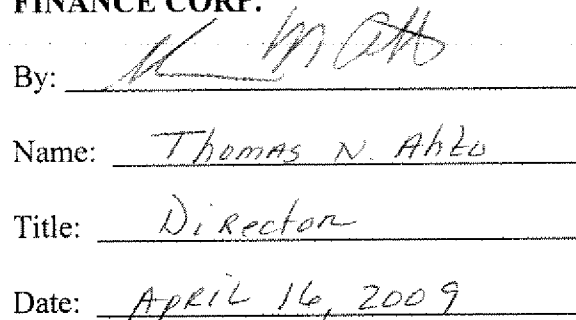 FINANCE CORP.
By:
Name: Thomas N. Ahto
Title: Director
Date: April 16, 2009